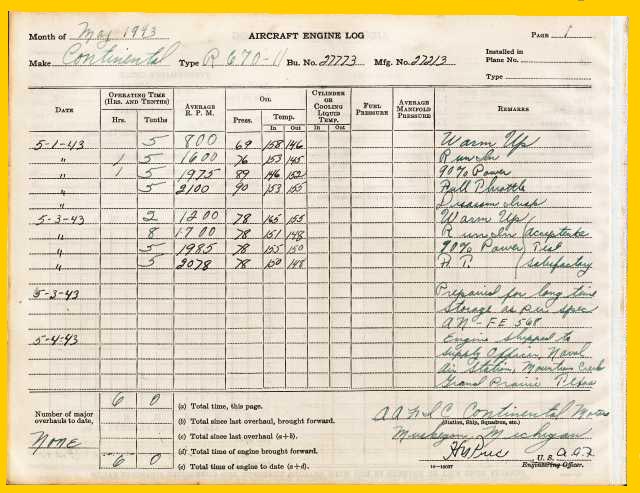 Month of May 1943 AIRCRAFT ENGINE LOG PAGE 1
Make Continental Type R 670-11 Bu. No. 27773 Mfg. No. 27213 Installed in Plane No.
Type
DATE OPERATING TIME (HRS. AND TENTHS) Hrs. Tenths AVERAGE R. P. M. OIL Press. Temp. In Out CYLINDER OR COOLING LIQUID TEMP. In Out FUEL PRESSURE AVERAGE MANIFOLD PRESSURE REMARKS
5-1-43 5 800 69 158 146 Warm Up
" 1 5 1600 76 153 145 Run In
" 1 5 1975 89 146 152 90% Power
" 5 2100 90 153 155 Full Throttle
Disassm Insp
5-3-43 2 1200 78 165 155 Warm Up
" 8 1700 78 151 148 Run In Acceptance
" 5 1985 78 155 150 90% Power Test
" 5 2078 78 150 148 F. T. Satisfactory
5-3-43 Prepaired for long time
Storage as per spec
AN-FE 568
5-4-43 Engine shipped to
Supply Officer, Naval
Air Station, Mountain Creek
Grand Prairie Texas
6 0 (a) Total time, this page.
Number of major overhauls to date, (b) Total time since last overhaul, brought forward.
NONE (c) Total time since last overhaul (a+b).
(d) Total time of engine brought forward.
6 0 (e) Total time of engine to date (a+d).
Continental Motors
(Station, Ship, Squadron, etc.)
Muskegon, Michigan
U. S. A.A.F.
16-10037 Engineering Officer.